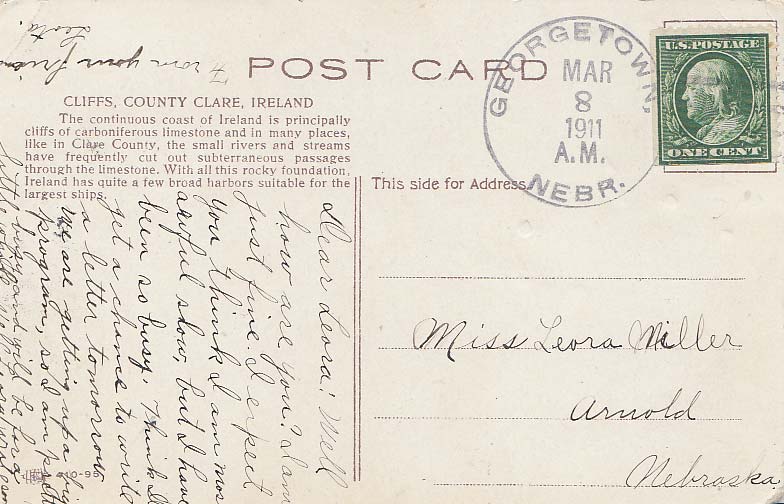 POST CARD
CLIFFS, COUNTY CLARE, IRELAND
The continuous coast of Ireland is principally
cliffs of carboniferous limestone and in many places,
like in Clare County, the small rivers and streams
have frequently cut out subterraneous passages
through the limestone. With all this rocky foundation,
Ireland has quite a few broad harbors suitable for the
largest ships.
This side for Address
GEORGETOWN,
MAR
8
1911
A.M.
NEBR.
U.S. POSTAGE
ONE CENT
Miss Leora Miller
Arnold
Nebraska
Dear Leora: Well
how are you? I am
just fine. I expect
you think I am mos
awful slow, but I have
been so busy. Think I'll
get a chance to write
a letter tomorrow
we are getting up a big
program, so I am
little busy and will be for a
little while
From your friend